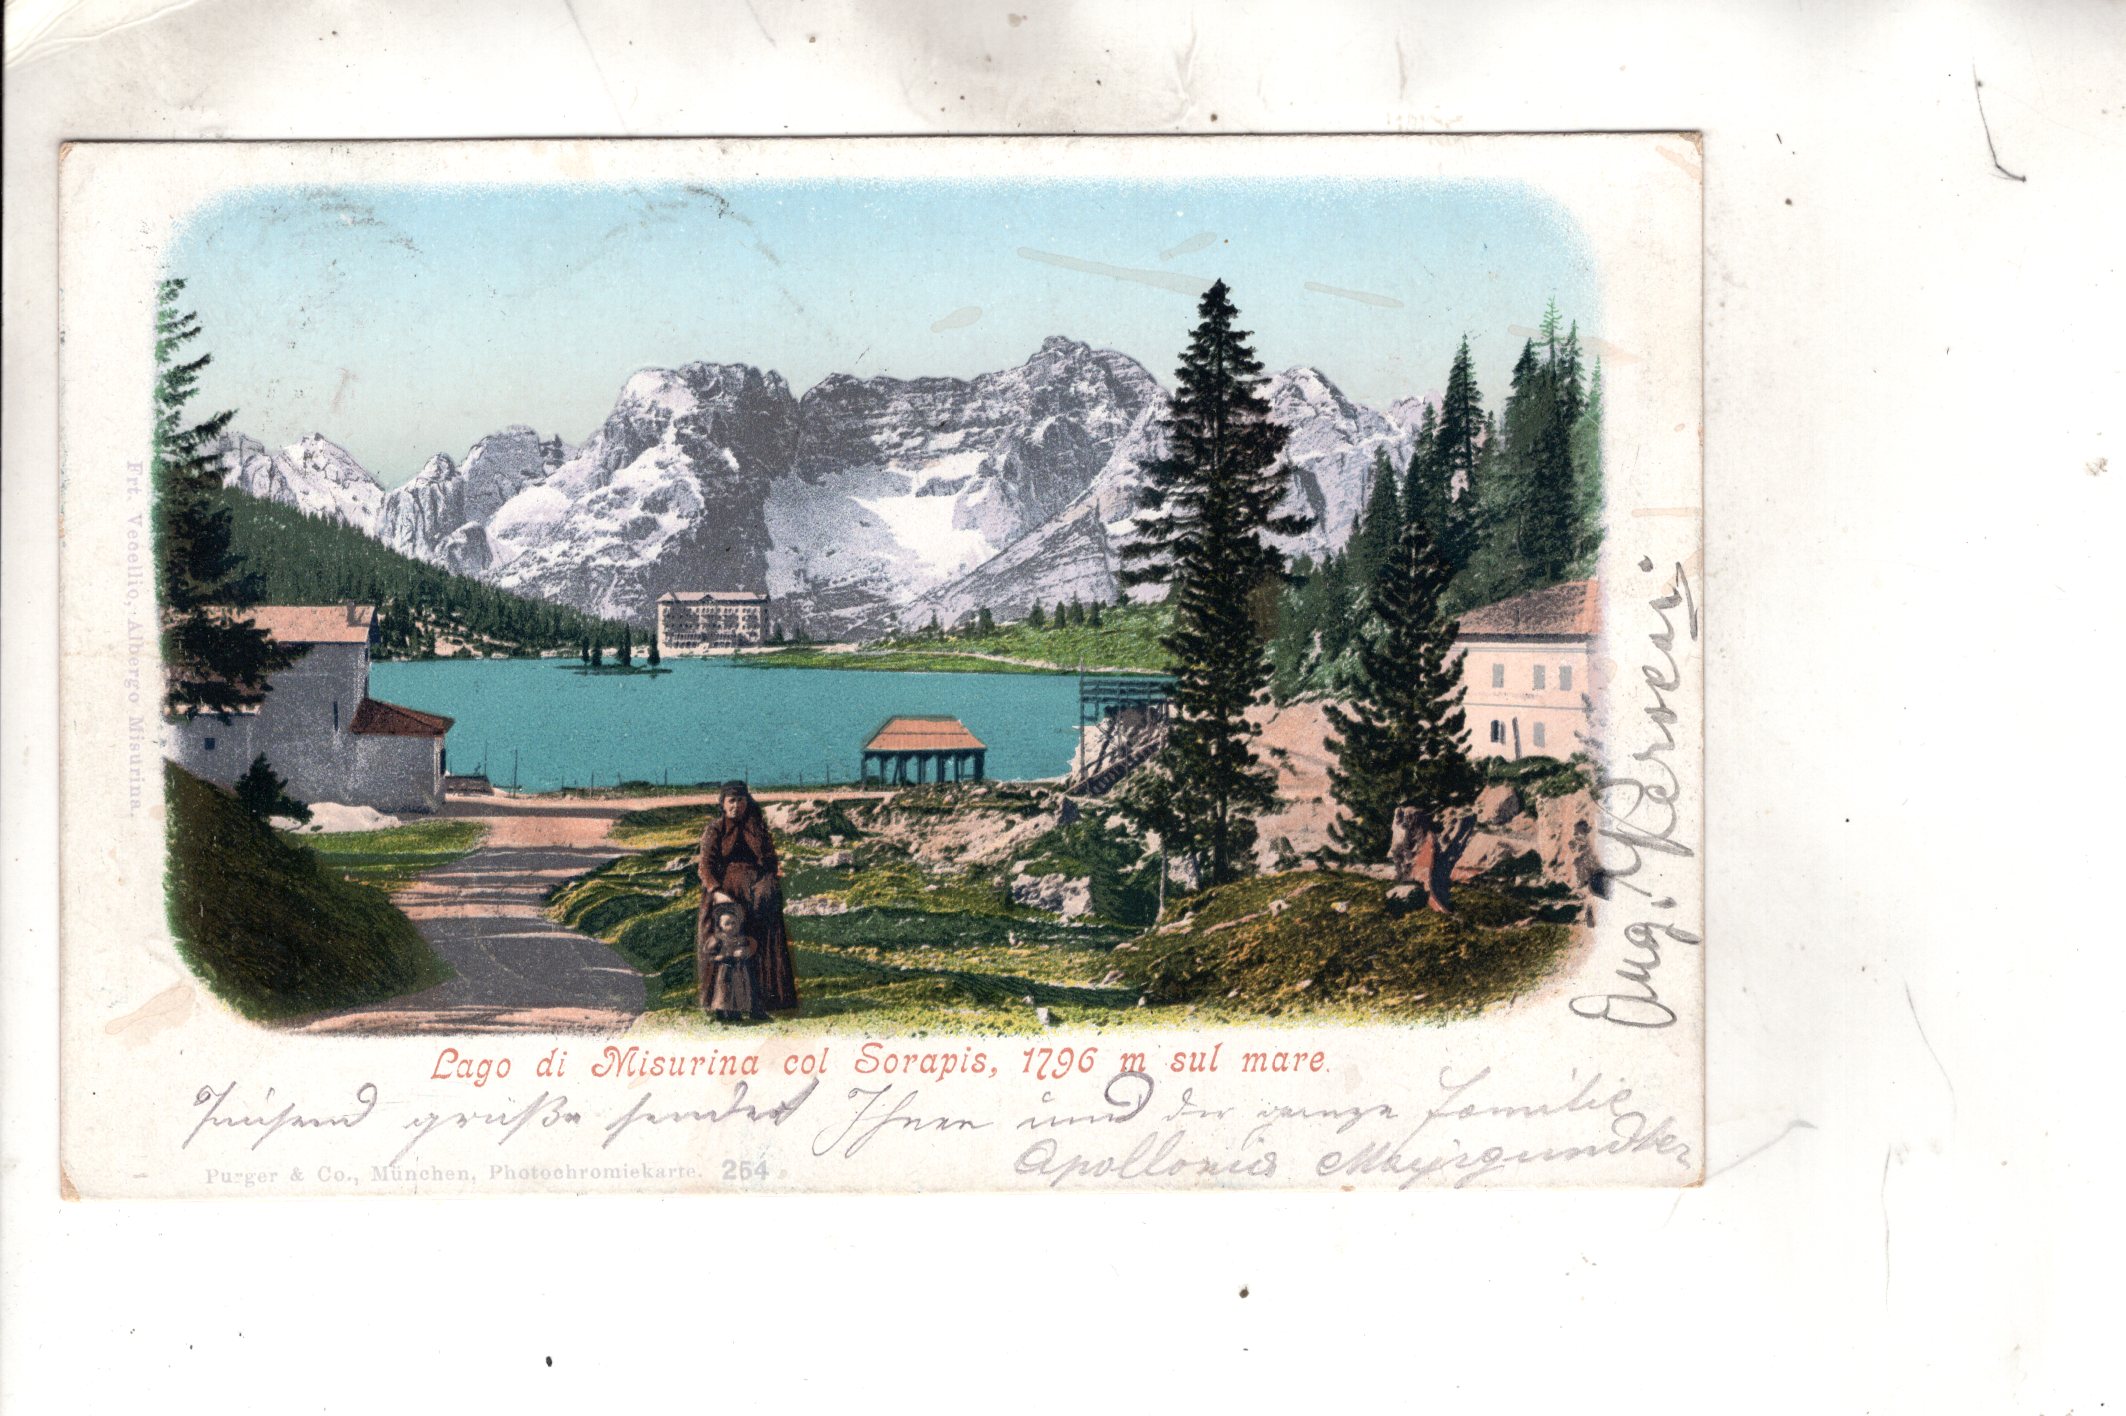 Frt. Vecellio, Albergo Misurina.
Lago di Misurina col Sorapis, 1796 m sul mare.
Tausend grüße sendet Ihnen und der ganze Familie
Apollonia
Purger & Co., München, Photochromiekarte. 254
Aug.